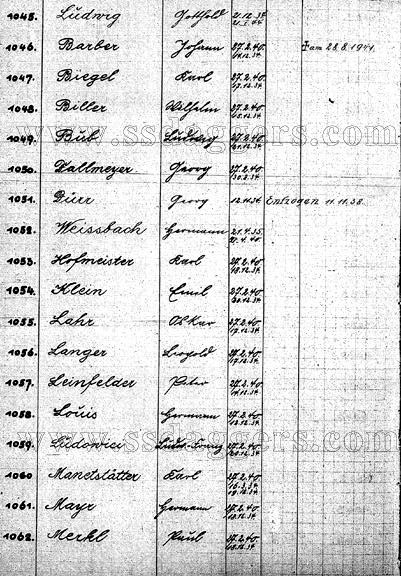 1045. Ludwig Gottfold 21.12.34
1046. Barber Johann 27.2.40. † am 28.8.1941.
14.12.34
1047. Biegel Karl 27.2.40.
17.12.34
1048. Biller Wilhelm 27.2.40.
1049. Bub Ludwig 27.2.40.
21.12.34
1050. Dallmeyer Georg 27.2.40.
1051. Dürr Georg 12.12.34 Entzogen 11.11.38.
1052. Weissbach Hermann 21.4.35.
27.4.40.
1053. Hofmeister Karl 27.2.40.
18.12.34
1054. Klein Emil 27.2.40.
20.12.34
1055. Lahr Oskar 27.2.40.
17.12.34
1056. Langer Leopold 27.2.40.
17.12.34
1057. Leinfelder Peter 27.2.40.
14.12.34
1058. Louis Hermann 27.2.40.
13.12.34
www.ssdaggers.com
1059. Ludowici 27.2.40.
1060 Manetstätter Karl 27.2.40.
19.12.34
1061. Mayr Hermann 27.2.40.
18.12.34
1062. Merkl Paul 27.2.40.
18.12.34